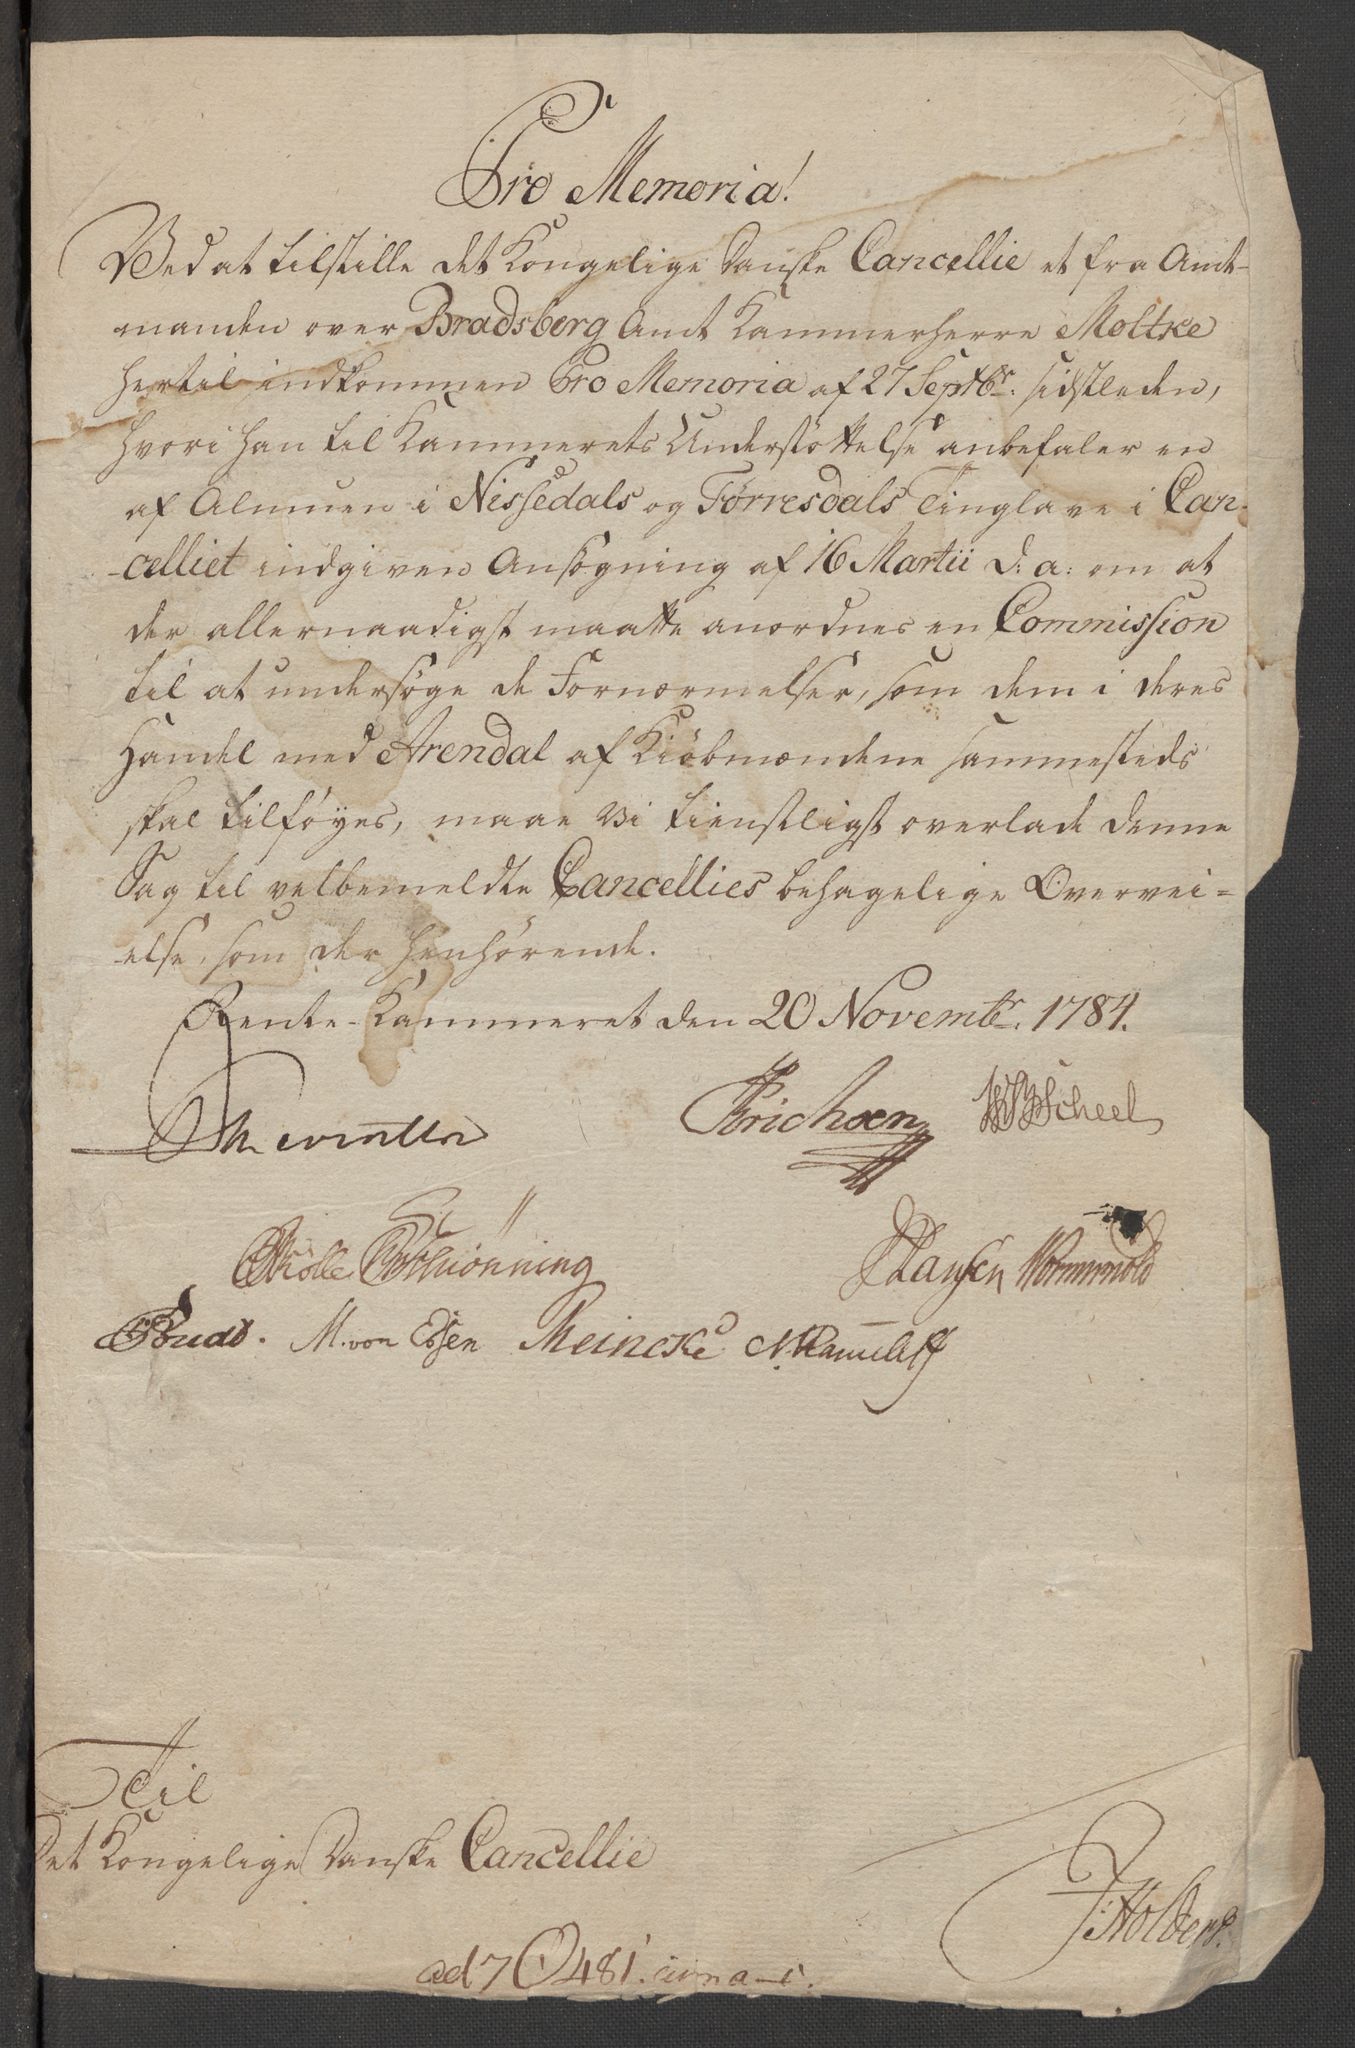 Pro Memoria!
Ved at tilstille det Kongelige Danske Cancellie et fra Amt-
manden over Bradsberg Amt Kammerherre Moltke
hertil indkommen Pro Memoria af 27 Septbr: sidstleden,
hvori han til Kammerets Understøttelse anbefaler en
af Almuen i Nissedals og Tørresdals Tinglave i Can-
-celliet indgiven Ansøgning af 16 Martii d: a: om at
der allernaadigst maatte anordnes en Commission
til at undersøge de Fornærmelser, som dem i deres
Handel med Arendal af Kiøbmændene sammesteds
skal tilføyes, maae vi tienstligst overlade denne
Sag til velbemeldte Cancellies behagelige Overvei-
-else, som der henhørende.
Rente-Kammeret den 20 Novembr. 1784.
Erichsen Scheel
Hansen Wormskiold
M. von Essen Meincke
Til
Det Kongelige Danske Cancellie
Holbers.
ad 7 481.